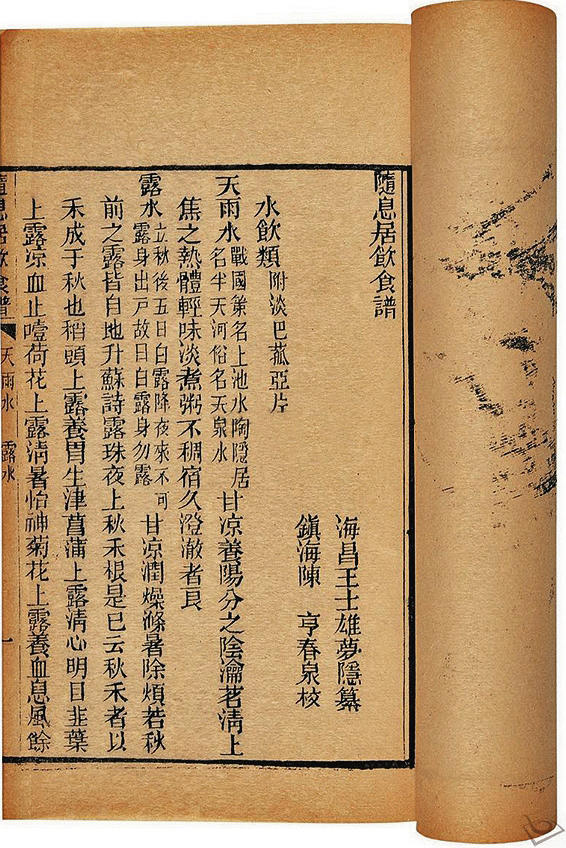 隨息居飲食譜
海昌王士雄夢隱纂
鎮海陳　亨春泉校
水飲類附淡巴菰亞片
天雨水戰國策名上池水陶隱居名半天河俗名天泉水甘涼養陽分之陰瀹茗清上
焦之熱體輕味淡煮粥不稠宿久澄澈者良
露水立秋後五日白露降夜來不可露身出戶故曰白露身勿露甘涼潤燥滌暑除煩若秋
前之露皆自地升蘇詩露珠夜上秋禾根是已云秋禾者以
禾成于秋也稻頭上露養胃生津菖蒲上露清心明目韭葉
上露涼血止噎荷花上露清暑怡神菊花上露養血息風餘
隨息居飲食譜　天雨水　露水　一